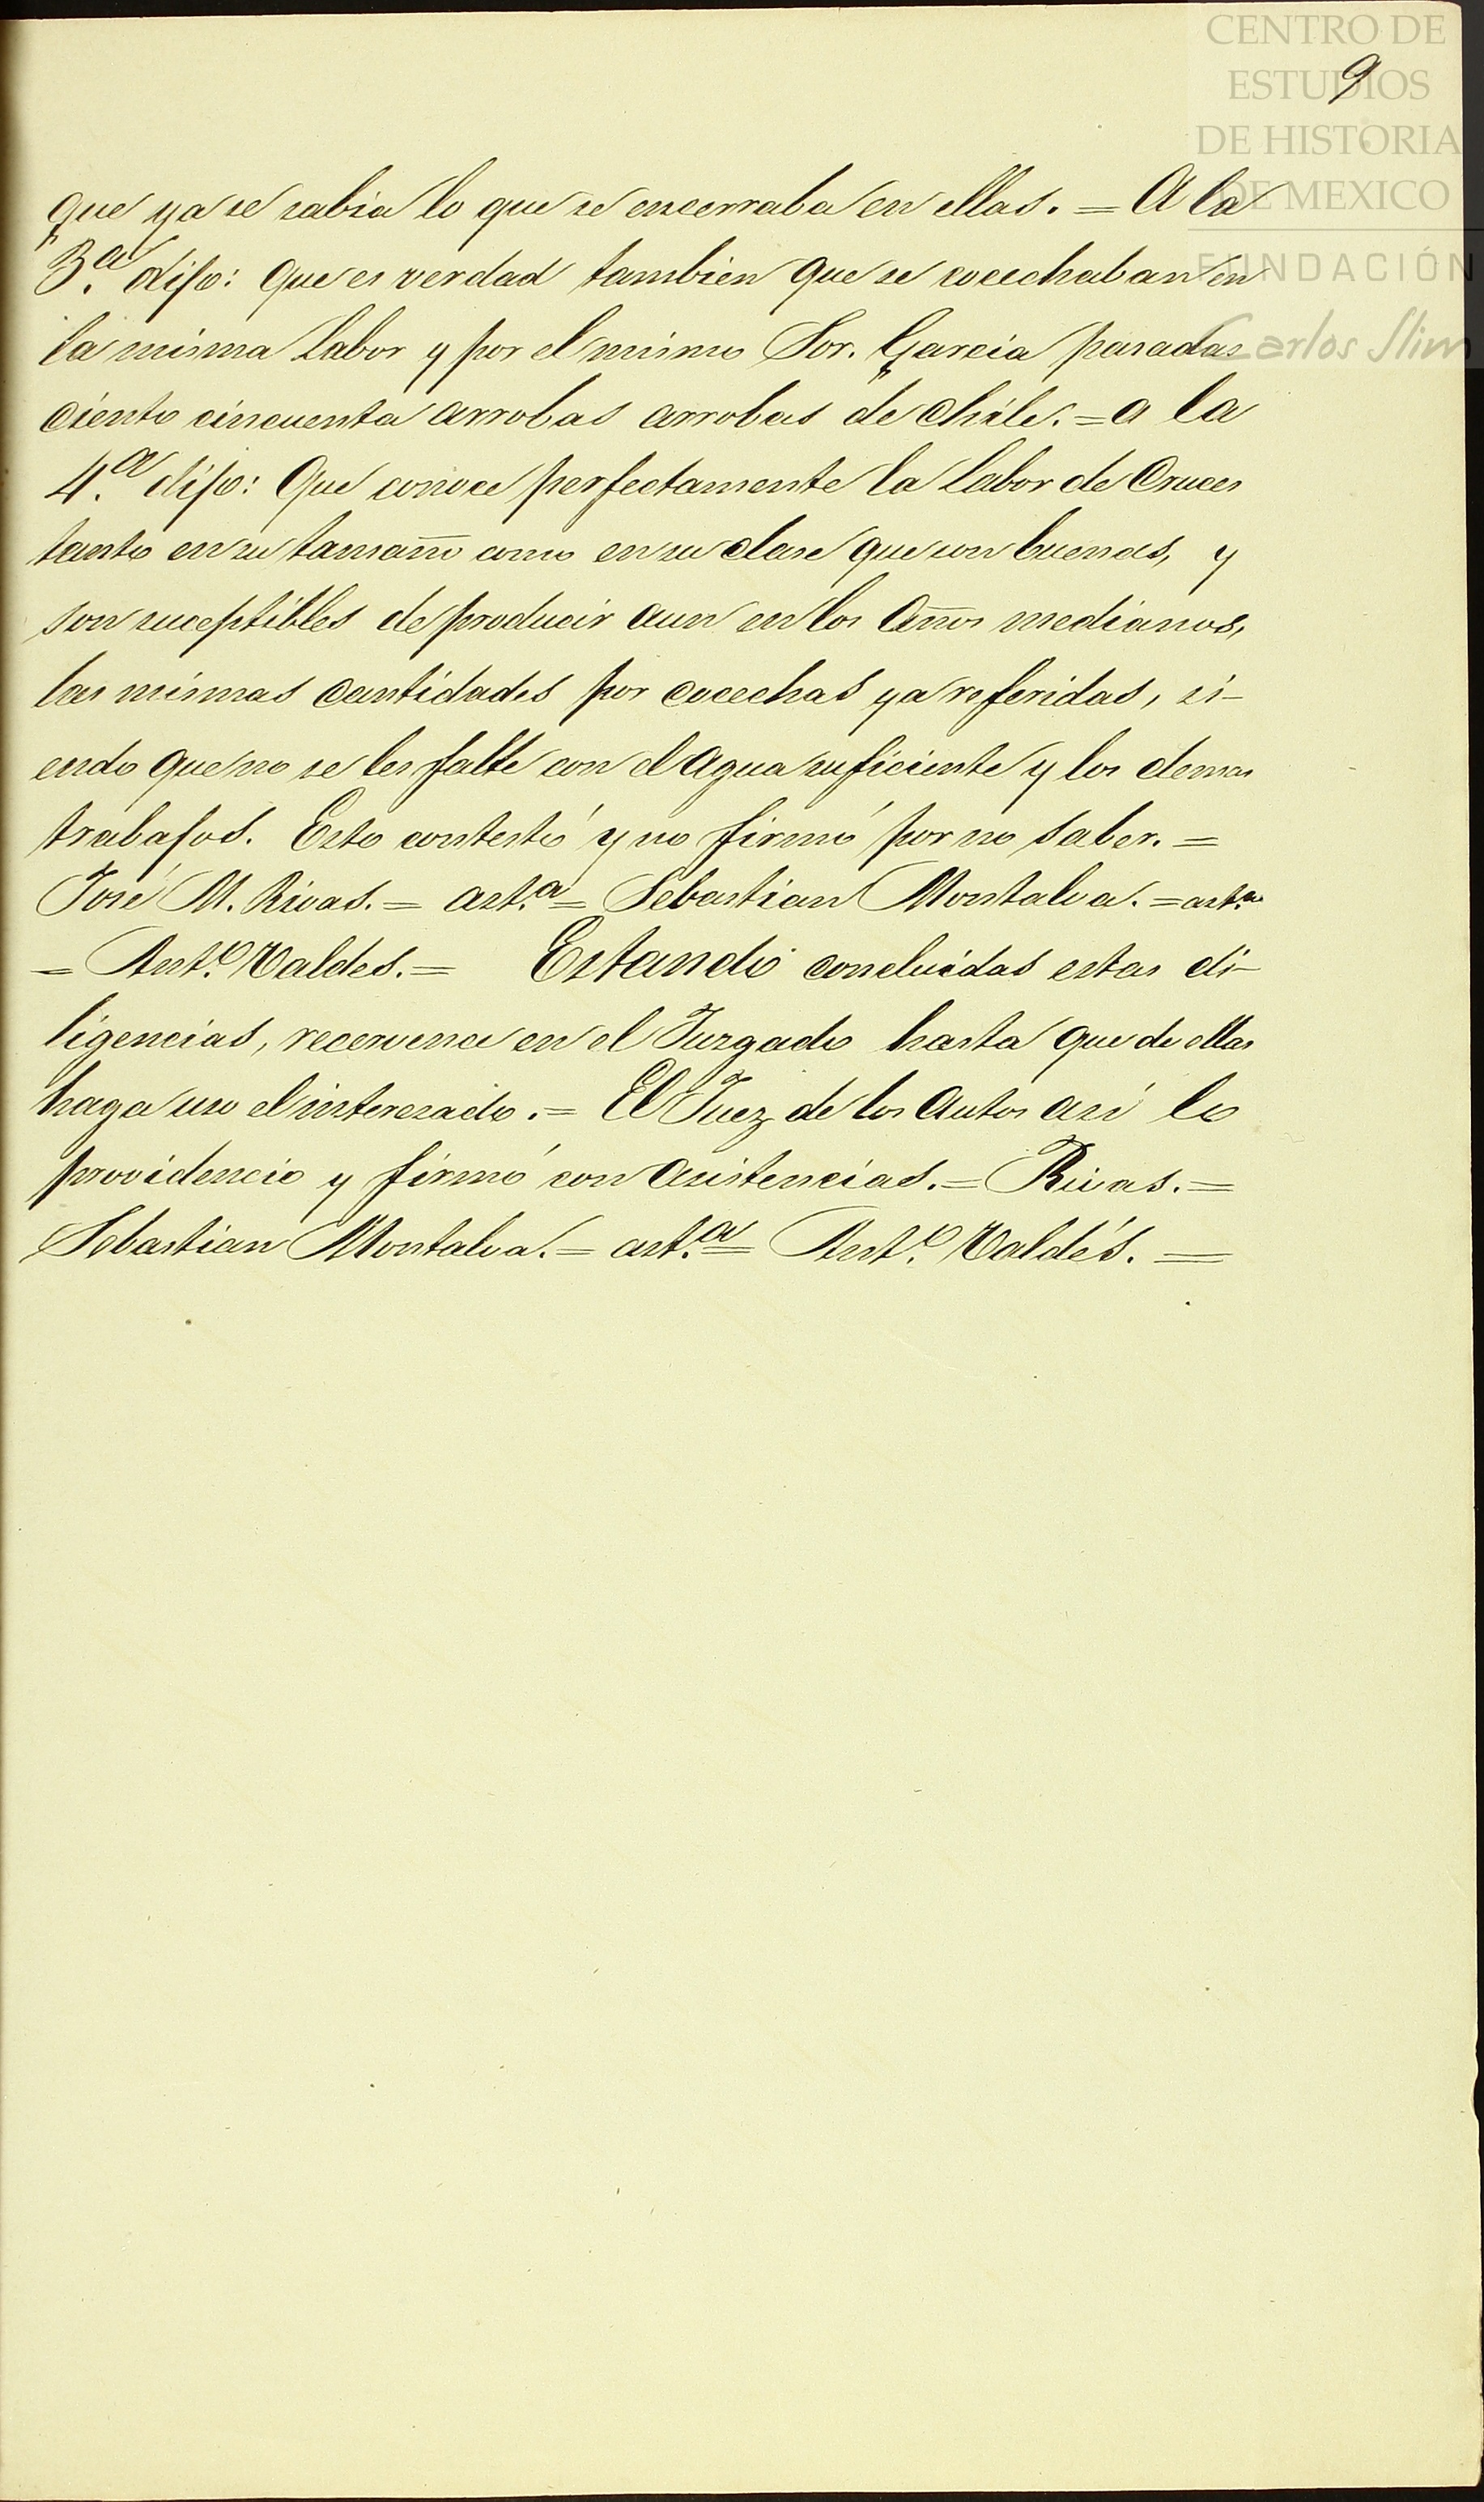 CENTRO DE
ESTUDIOS
DE HISTORIA
DE MEXICO
FUNDACIÓN
Carlos Slim
9
que ya se sabia lo que se encerraba en ellas. = A la
3.ª dijo: Que es verdad tambien que se cocechaban en
la misma Labor y por el mismo Sor. Garcia pasadas
ciento cincuenta arrobas arrobas de chile. = a la
4.ª dijo: Que conoce perfectamente la Labor de Cruces
tanto en su tamaño como en su clase que son buenas, y
son suceptibles de producir aun en los años medianos,
las mismas cantidades por cocechas ya referidas, si-
endo que no se les falte con el agua suficiente y los demas
trabajos. Esto contestó y no firmó por no saber. =
José M. Rivas. = ast.ª = Sebastian Montalva. = ast.ª
= Ant.º Valdes. = Estando concluidas estas di-
ligencias, recervence en el Juzgado hasta que de ellas
haga uso el interesado. = El Juez de los Autos asi lo
providencio y firmó con asistencias. = Rivas. =
Sebastian Montalva. = ast.ª = Ant.º Valdés. =